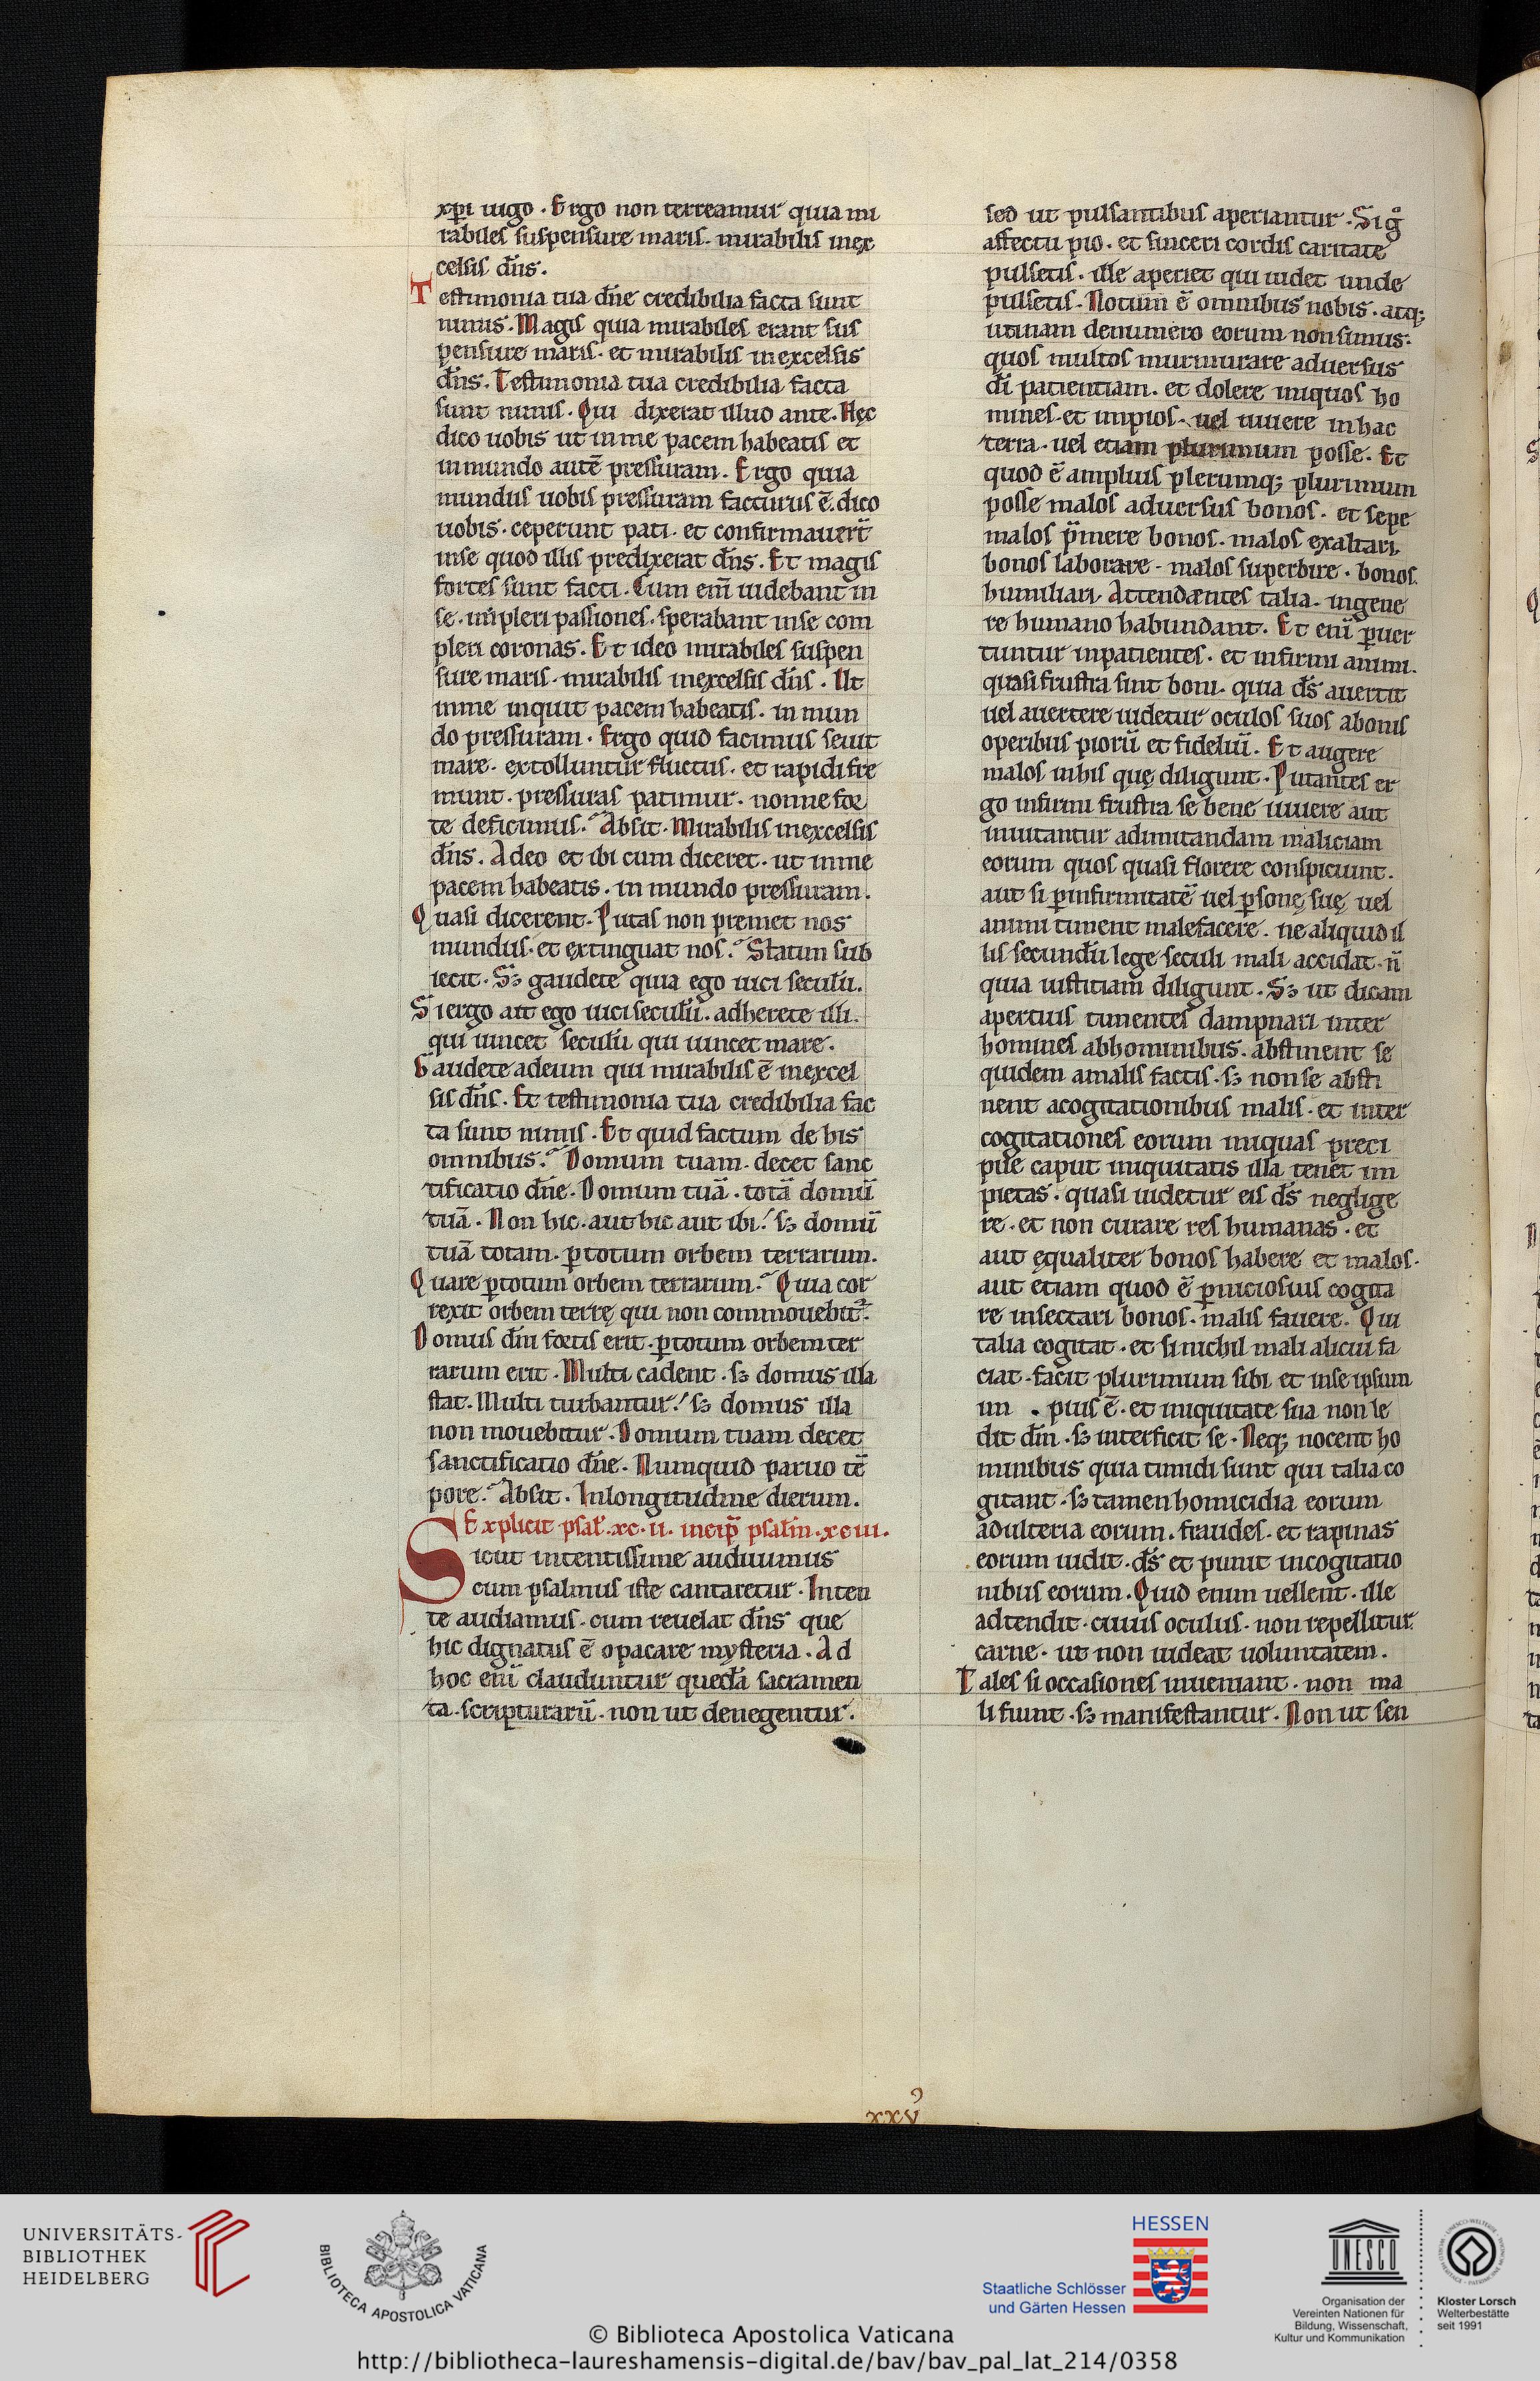 xp̄i iugo. Ergo non terreamur quia mi
rabiles suspensure maris. mirabilis inex
celsis dn̄s.
Testimonia tua dn̄e credibilia facta sunt
nimis. Magis quia mirabiles erant sus
pensure maris. et mirabilis inexcelsis
dn̄s. Testimonia tua credibilia facta
sunt nimis. Qui dixerat illud ante. Hęc
dico uobis ut inme pacem habeatis et
inmundo autē pressuram. Ergo quia
mundus uobis pressuram facturus ē. dico
uobis. ceperunt pati. et confirmauer̄t
inse quod illis predixerat dn̄s. Et magis
fortes sunt facti. Cum eni̅ uidebant in
se. inpleri passiones. sperabant inse com
pleri coronas. Et ideo mirabiles suspen
sure maris. mirabilis inexcelsis dn̄s. Ut
inme inquit pacem habeatis. in mun
do pressuram. Ergo quid facimus seuit
mare. extolluntur fluctus. et rapidi fre
munt. pressuras patimur. nonne for
te deficimus. Absit. Mirabilis inexcelsis
dn̄s. Adeo et ibi cum diceret. ut inme
pacem habeatis. in mundo pressuram.
Quasi dicerent. Putas non premet nos
mundus. et extinguat nos. Statim sub
iecit. Sꝫ gaudete quia ego uici seculū.
Siergo ait ego uici seculū. adherete illi.
qui uincet seculū qui uincet mare.
Gaudete adeum qui mirabilis ē inexcel
sis dn̄s. Et testimonia tua credibilia fac
ta sunt nimis. Et quid factum de his
omnibus. Domum tuam. decet sanc
tificatio dn̄e. Domum tuā. totā domū
tuā. Non hic. aut hic aut ibi. sꝫ domū
tuā totam. ꝑtotum orbem terrarum.
Quare ꝑtotum orbem terrarum. Quia cor
rexit orbem terrę qui non commouebit̄.
Domus dn̄i fortis erit. ꝑtotum orbem ter
rarum erit. Multi cadent. sꝫ domus illa
stat. Multi turbantur. sꝫ domus illa
non mouebitur. Domum tuam decet
sanctificatio dn̄e. Numquid paruo tē
pore. Absit. Inlongitudine dierum.
Explicit psal̄. xc. ii. incip̄ psal̄m. xciii.
Sicut intentissime audiuimus
cum psalmus iste cantaretur. Inten
te audiamus. cum reuelat dn̄s que
hic dignatus ē opacare mysteria. Ad
hoc eni̅ clauduntur quedā sacramen
ta. scripturarū. non ut denegentur.
sed ut pulsantibus aperiantur. Sigͦ
affectu pio. et sinceri cordis caritate
pulsetis. ille aperiet qui uidet unde
pulsetis. Notum ē omnibus nobis. atq;
utinam denumero eorum non simus.
quos multos murmurare aduersus
dī patientiam. et dolere iniquos ho
mines. et impios. uel uiuere inhac
terra. uel etiam plurimum posse. Et
quod ē amplius plerumq; plurimum
posse malos aduersus bonos. et sepe
malos p̄mere bonos. malos exaltari.
bonos laborare. malos superbire. bonos
humiliari. Attendentes talia. ingene
re humano habundant. Et eni̅ ꝑuer
tuntur inpatientes. et infirmi animi.
quasi frustra sint boni. quia ds̄ auertit
uel auertere uidetur oculos suos abonis
operibus piorū et fideliū. Et augere
malos inhis quę diligunt. Putantes er
go infirmi frustra se bene uiuere aut
inuitantur adimitandam maliciam
eorum quos quasi florere conspiciunt.
aut si ꝑinfirmitatē uel ꝑsonę suę uel
animi timent malefacere. ne aliquid il
lis secundū lege seculi mali accidat. n̄
quia iustitiam diligunt. Sꝫ ut dicam
apertius timentes dampnari inter
homines abhominibus. abstinent se
quidem amalis factis. sꝫ nonse absti
nent acogitationibus malis. et inter
cogitationes eorum iniquas preci
pue caput iniquitatis illa tenet im
pietas. quasi uidetur eis ds̄ neglige
re. et non curare res humanas. et
aut ęqualiter bonos habere et malos.
aut etiam quod ē ꝑniciosius cogita
re insectari bonos. malis fauere. Qui
talia cogitat. et sinichil mali alicui fa
ciat. facit plurimum sibi et inse ipsum
im . pius ē. et iniquitate sua non le
dit dm̄. sꝫ interficit se. Neq; nocent ho
minibus quia timidi sunt qui talia co
gitant. sꝫ tamen homicidia eorum
adulteria eorum. fraudes. et rapinas
eorum uidit. ds̄ et punit incogitatio
nibus eorum. Quid enim uellent. ille
adtendit. cuius oculus. non repellitur
carne. ut non uideat uoluntatem.
Tales si occasiones inueniant. non ma
li fiunt. sꝫ manifestantur. Non ut sen
xxv
UNIVERSITÄTS-
BIBLIOTHEK
HEIDELBERG
BIBLIOTECA APOSTOLICA VATICANA
HESSEN
Staatliche Schlösser
und Gärten Hessen
UNESCO
Organisation der
Vereinten Nationen für
Bildung, Wissenschaft,
Kultur und Kommunikation
Kloster Lorsch
Welterbestätte
seit 1991
© Biblioteca Apostolica Vaticana
http://bibliotheca-laureshamensis-digital.de/bav/bav_pal_lat_214/0358